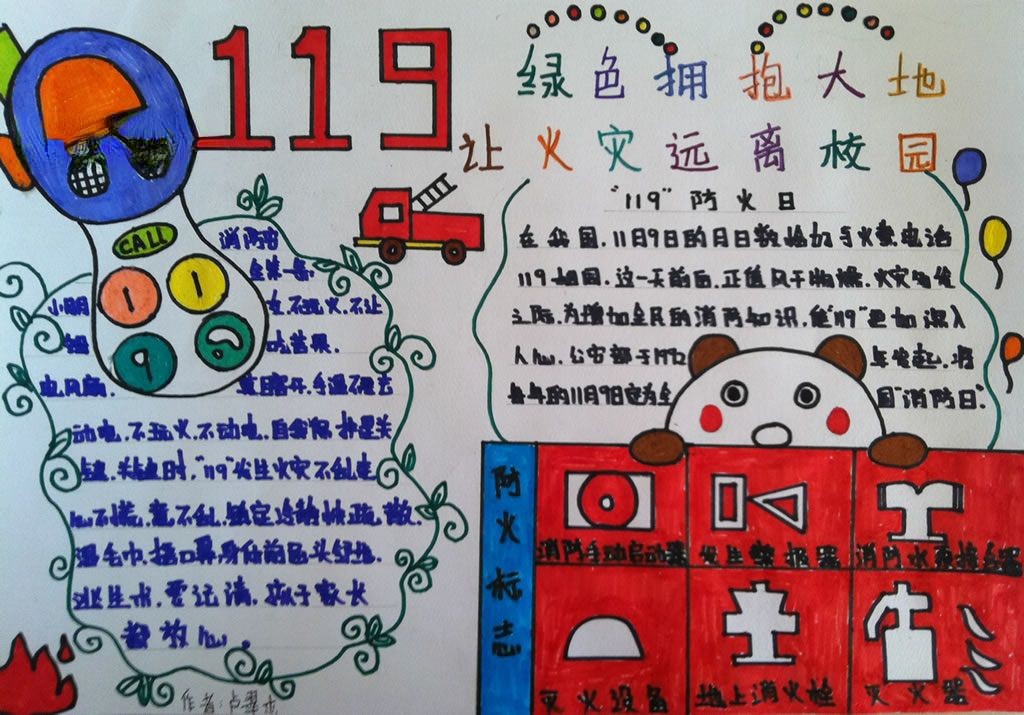 119
绿色拥抱大地
让火灾远离校园
"119"防火日
在我国,11月9日的月日数恰好与火警电话
119相同,这一天前后,正值风干物燥、火灾多发
之际,为增加全民的消防知识,使"119"更加深入
人心,公安部于1992年发起,将
每年的11月9日定为全国"消防日"。
CALL
1 1
9
消防安
全第一条
小朋友,不玩火,不让
吃苦果。
电风扇,
动电,不玩火,不动电,自我保护是关
键,关键时,"119"发生火灾不乱走
心不慌,意不乱,镇定冷静快疏散,
湿毛巾,捂口鼻,身体前屈头
逃生
要记清,孩子家长
都放心。
作者:卢
防火标志
消防手动启动器
发生警报器
消防水泵接合器
灭火设备
地上消火栓
灭火器